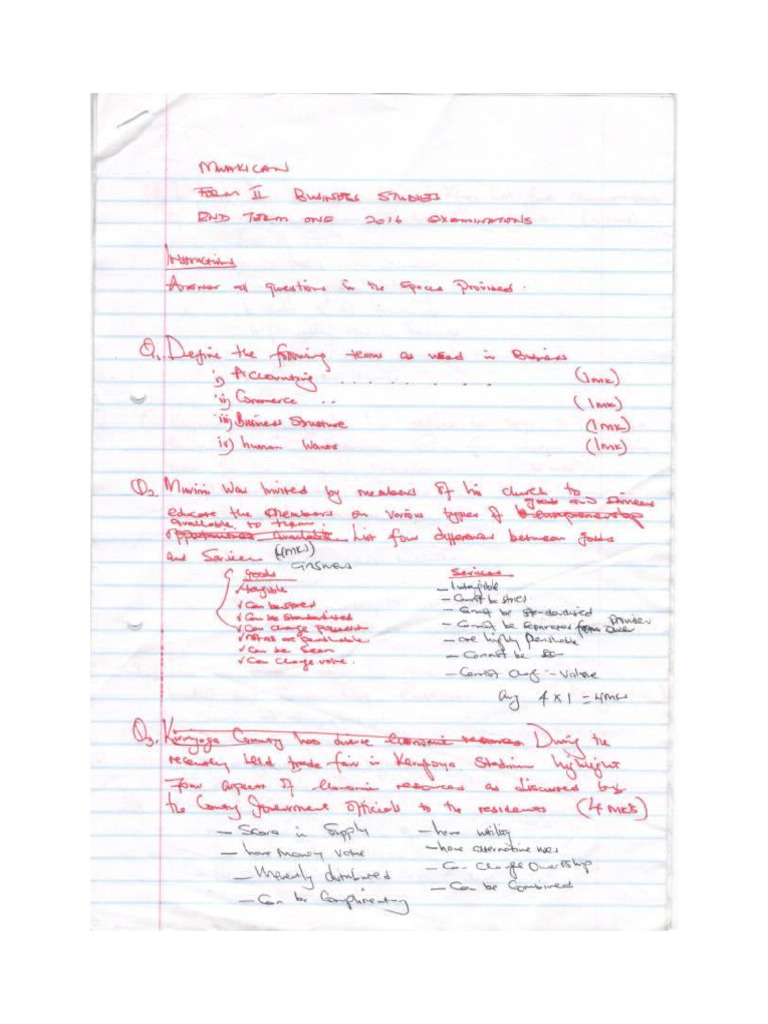 MWAKICAN
FORM II BUSINESS STUDIES
END TERM ONE 2016 EXAMINATIONS
Instructions
Answer all questions in the spaces Provided.
Q1. Define the following terms as used in Business
i) Accounting . . . . . . . . (1mk)
ii) Commerce .. (1mk)
iii) Business Structure (1mk)
iv) human Wants (1mk)
Q2 Murimi was invited by members of his church to
goods and services
educate the members on various types of entrepreneurship
available to them.
opportunities available. List four differences between goods
and Services (4mks)
answers
goods Services
✓tangible – Intangible
✓Can be stored – Cannot be stored
✓Can be standardized – Cannot be standardized
✓Can change possession – Cannot be separated from Provider
✓Not all are perishable – are highly perishable
✓Can be Seen – Cannot be
✓Can change value. – Cannot – Value
Any 4 x 1 = 4mks
Q3. County has diverse Economic resources During the
recently held trade fair in Kerugoya Stadium highlight
Four aspects of Economic resources as discussed by
the County Government officials to the residents (4 mks)
– Scarce in Supply – have utility
– have money value – have alternative uses
– distributed – Can change Ownership
– Can be Complimentary – Can be Combined